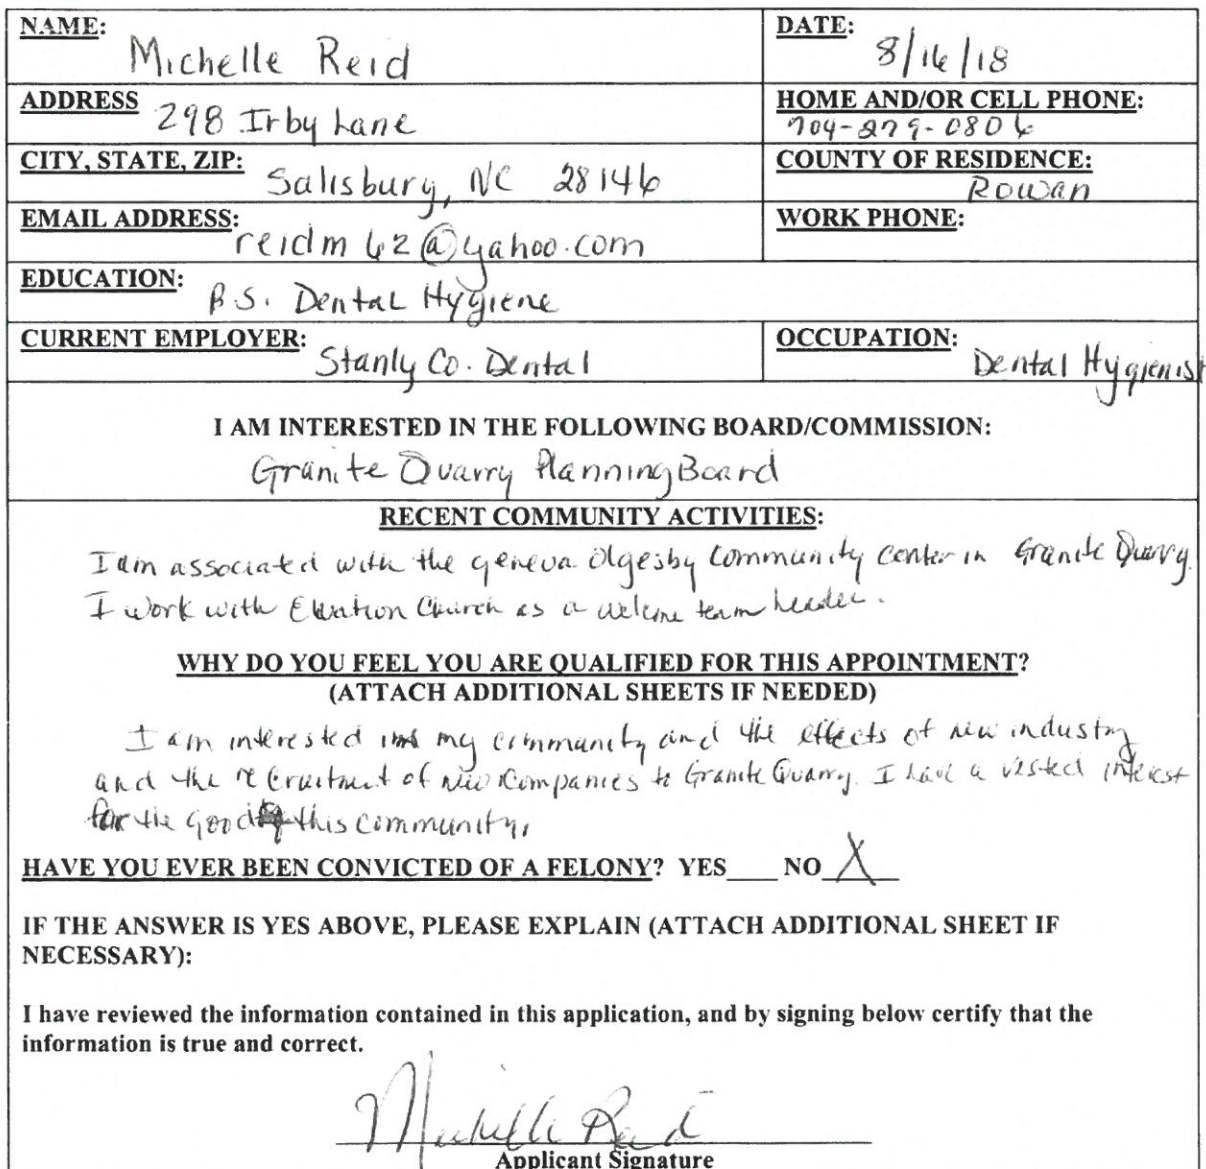 NAME: Michelle Reid DATE: 8/16/18
ADDRESS 298 Irby Lane HOME AND/OR CELL PHONE: 704-279-0806
CITY, STATE, ZIP: Salisbury, NC 28146 COUNTY OF RESIDENCE: Rowan
EMAIL ADDRESS: reidm62@yahoo.com WORK PHONE:
EDUCATION: B.S. Dental Hygiene
CURRENT EMPLOYER: Stanly Co. Dental OCCUPATION: Dental Hygienist
I AM INTERESTED IN THE FOLLOWING BOARD/COMMISSION:
Granite Quarry Planning Board
RECENT COMMUNITY ACTIVITIES:
I am associated with the geneva Olgesby Community center in Granite Quarry.
I work with Elevation Church as a welcome team leader.
WHY DO YOU FEEL YOU ARE QUALIFIED FOR THIS APPOINTMENT?
(ATTACH ADDITIONAL SHEETS IF NEEDED)
I am interested in my community and the effects of new industry
and the recruitment of new companies to Granite Quarry. I have a vested interest
for the good of this community.
HAVE YOU EVER BEEN CONVICTED OF A FELONY? YES____ NO X
IF THE ANSWER IS YES ABOVE, PLEASE EXPLAIN (ATTACH ADDITIONAL SHEET IF
NECESSARY):
I have reviewed the information contained in this application, and by signing below certify that the
information is true and correct.
Michelle Reid
Applicant Signature